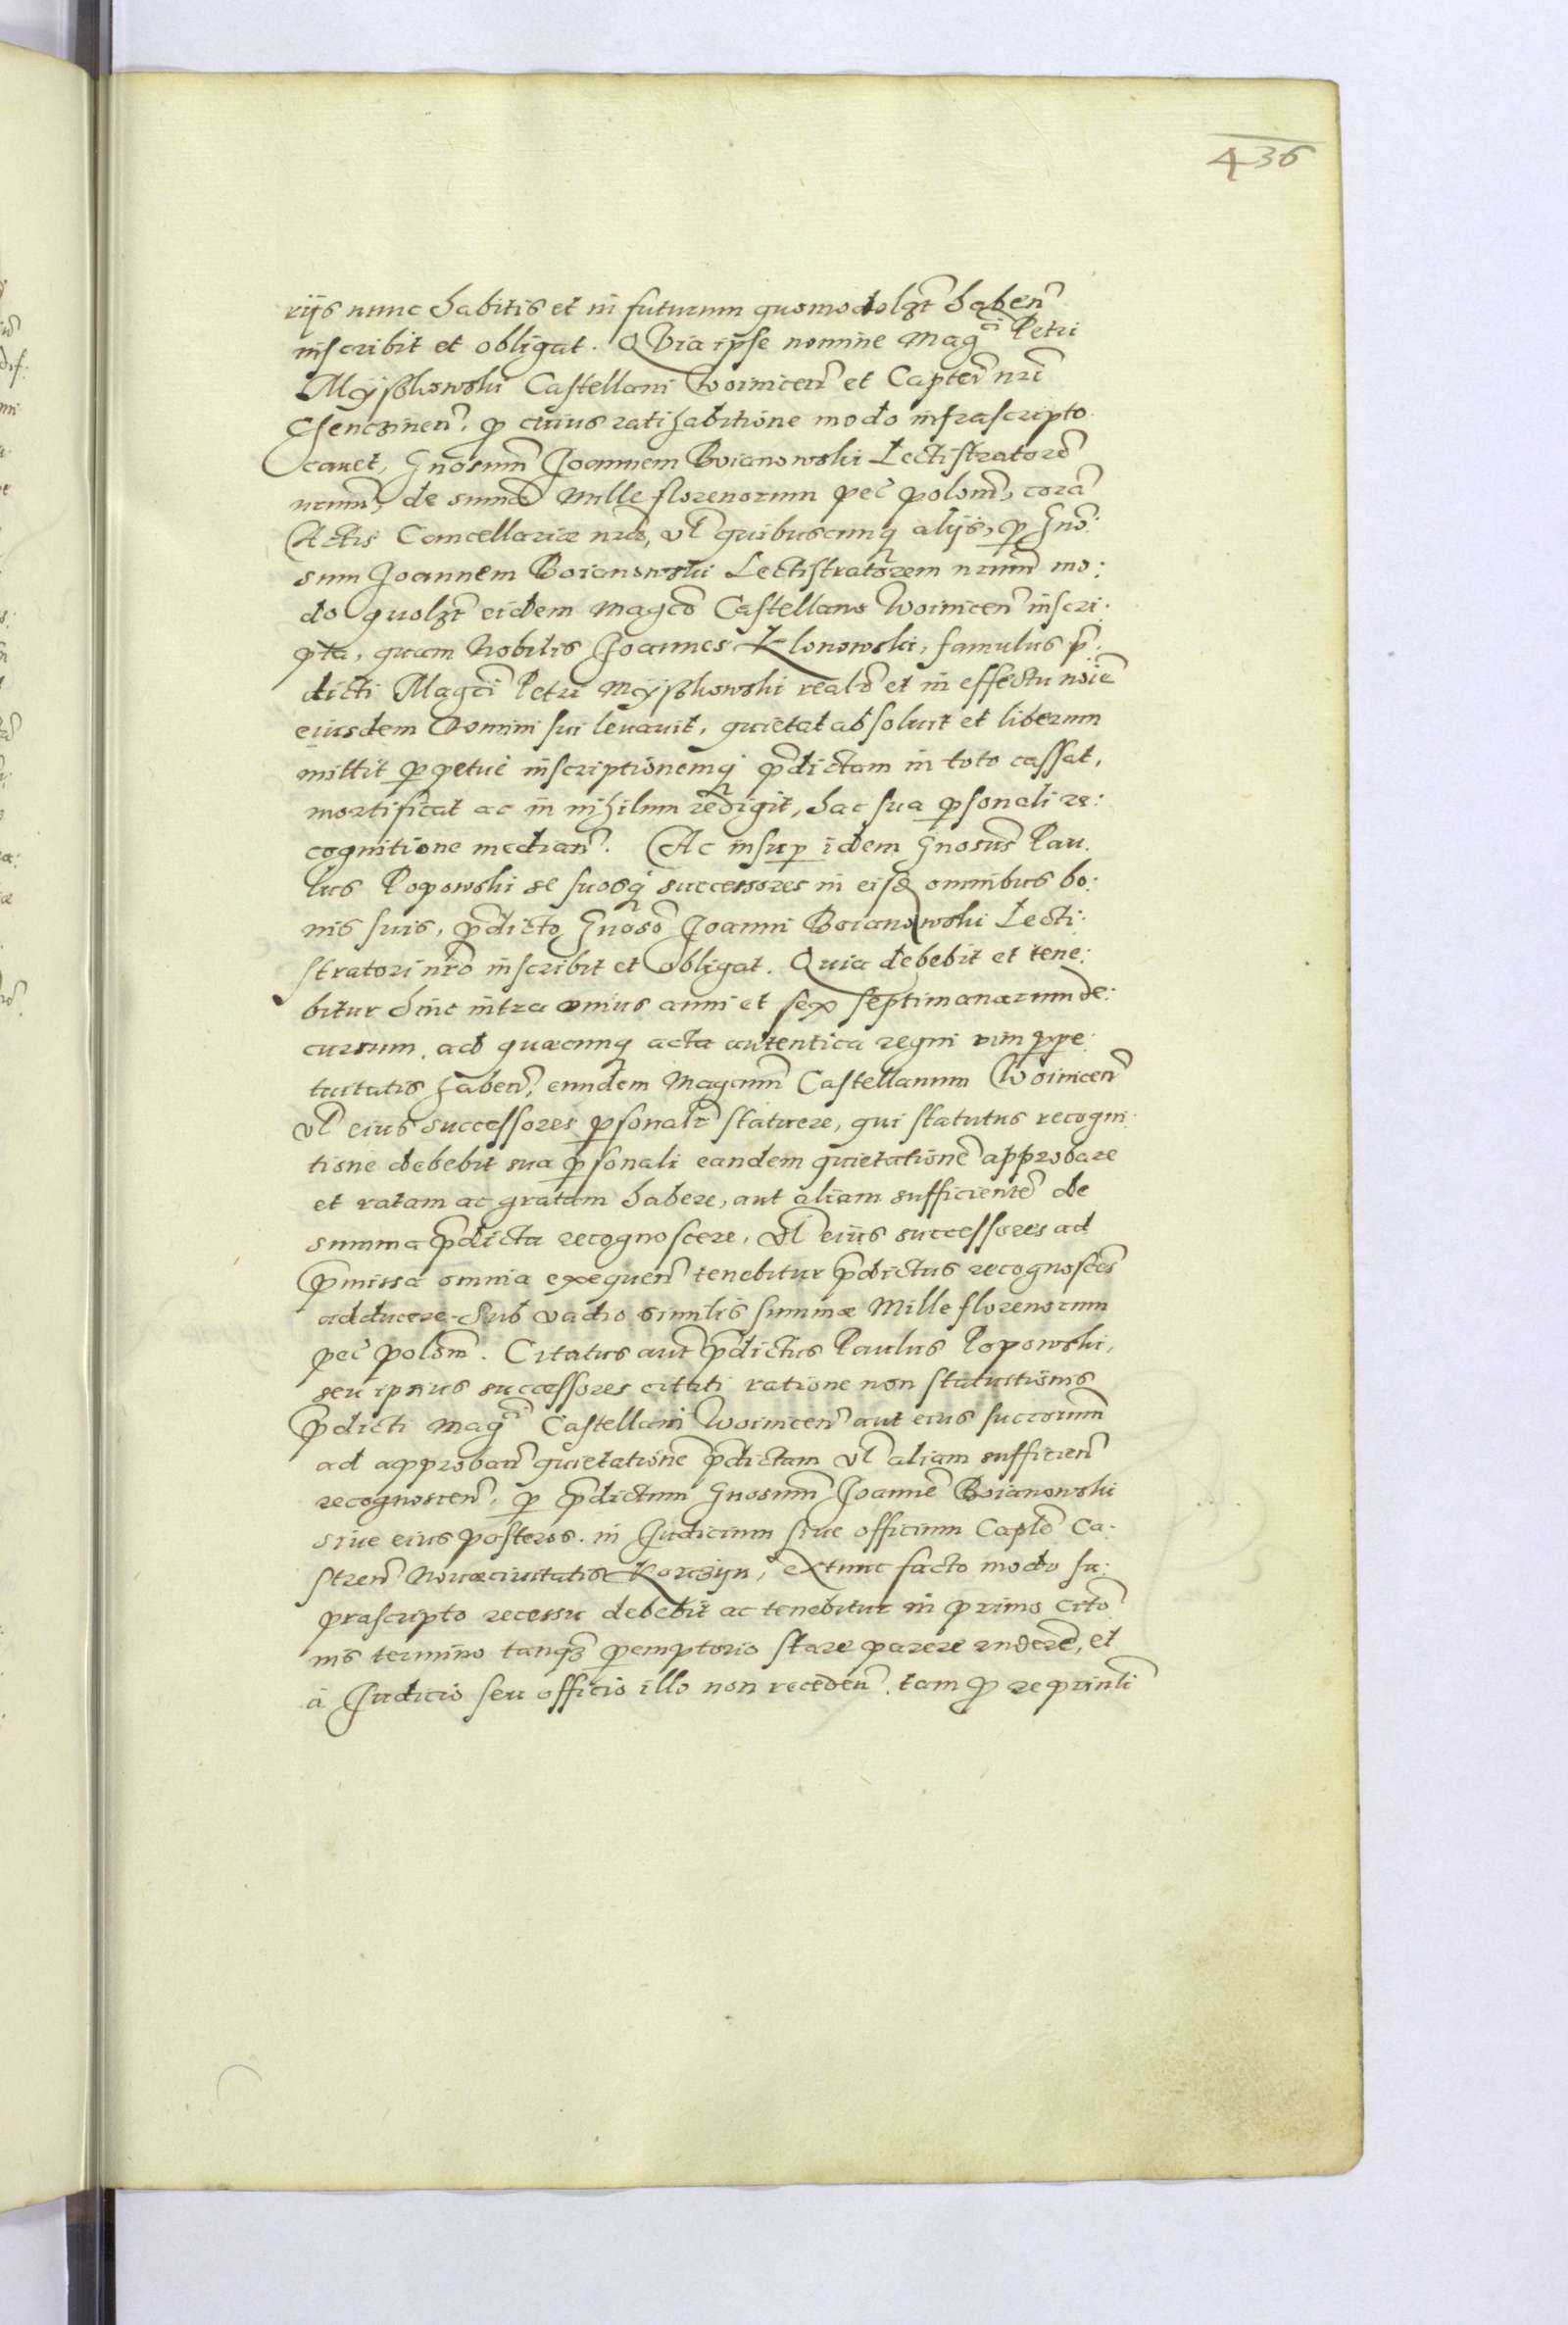 436
riis nunc habitis et in futurum quomodolȝt haben̄
inscribit et obligat. Quia ipse nomine Mag̃ci Petri
Myſzkowski Castellani Woinicen̄ et Captei nr̃i
Chencinen̄, ꝓ cuius ratihabitione modo infrascripto
cauet, Gnosum̃ Joannem Boianowski Lectistratorē
nrum̃, de summa Mille florenorum pec̃ polon̄, corã
Actis Cancellariæ nr̃æ, vl̃ quibuscunq̃ alijs, ꝑ Gno:
sum Joannem Boianowski Lectistratorem nrum̃ mo:
do quolȝt eidem Magco Castellano Woinicen̄ inscri:
pta, quam Nobilis Joannes Klonowski, famulus p̃:
dicti Magci Petri Myſzkowski realr̃ et in effectu noiẽ
eiusdem Domini sui leuauit, quietat absoluit et liberum
mittit ꝑpetue inscriptionemq̃ p̃dictam in toto cassat,
mortificat ac in nihilum redigit, hac sua ꝑsonali re:
cognitione median̄. Ac insuꝑ idem Gnosus Pau:
lus Popowski se suosq̃ successores in eisd̃ omnibus bo:
nis suis, p̃dicto Gnoso Joanni Boianowski Lecti:
stratori nr̃o inscribit et obligat. Quia debebit et tene:
bitur hinc intra vnius anni et sex septimanarum de:
cursum, ad quæcunq̃ acta autentica regni vim ꝑpe:
tuitatis haben̄, eundem Magcum̃ Castellanum Woinicen̄
vl̃ eius successores ꝑsonalr̃ statuere, qui statutus recogni:
tione debebit sua ꝑsonali eandem quietationē approbare
et ratam ac gratam habere, aut aliam sufficientē de
summa p̃dicta recognoscere, vl̃ eius successores ad
p̃missa omnia exequen̄ tenebitur p̃dictus recognoscēs
adducere. Sub vadio similis summæ Mille florenorum
pec̃ polon̄. Citatus aut̃ p̃dictus Paulus Popowski,
seu ipsius successores citati ratione non statuitionis
p̃dicti Mag̃ci Castellani Woinicen̄ aut eius succorum̃
ad approban̄ quietationē p̃dictam vl̃ aliam sufficien̄
recognoscen̄, ꝑ p̃dictum Gnosum̃ Joannē Boianowski
siue eius posteros. in Judicium siue officium Caplē Ca:
stren̄ Nouæciuitatis Korczyn, extunc facto modo su:
prascripto recessu debebit ac tenebitur in primo cito
nis termino tanq̃ ꝑemptorio stare parere rndere, et
à Judicio seu officio illo non receden̄. tam ꝓ re prinli